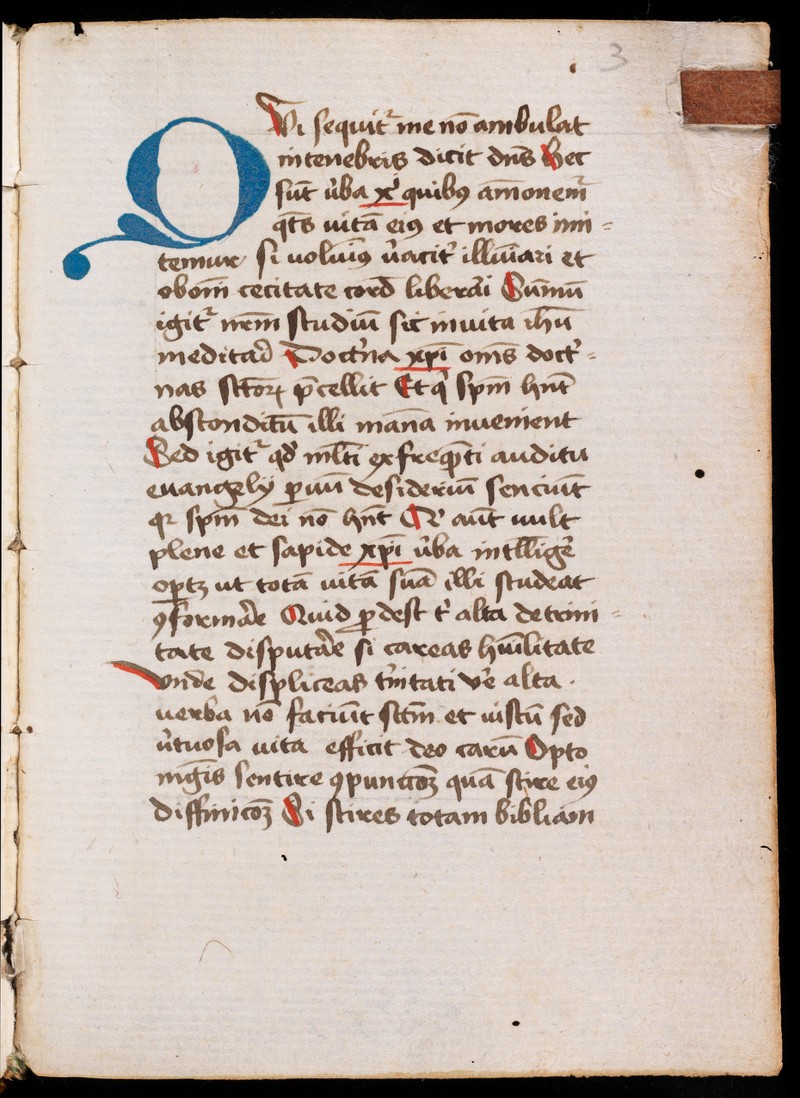 3
QVi sequit᷑ me nō ambulat
in tenebris dicit dn̄s Hec
sūt v̓ba xp̄i quibꝯ am̄onem᷑
qt̄s uitā eiꝯ et mores imi=
temur si uolum̄ꝯ v̓acit᷑ illum̄ari et
ab om̄i cecitate cord̄ liber̄ai Sum̄ū
igit᷑ nr̄m studiū sit in uita ih̄u
meditar̄ Doct͛na xp̄i om̄s doct͛=
nas sc̄toꝝ p̄cellit Et q̇ spm̄ hn̄t
absconditū illi man̄a inuenient
Sed igit᷑ qd̓ ml̄ti ex freqn̄ti auditu
euangelij ꝑuū desideriū senciūt
qꝛ spm̄ dei nō hn̄t Q̇ aūt uult
plene et sapide xp̄i v̓ba intellig͛e
oꝑtꝫ ut totā uitā suā illi studeat
ꝯformar̄e Quid ꝓdest t̓ alta de trini=
tate disputar̄e si careas hūilitate
vnde displiceas t͛nitati Ve͛ alta
uerba nō faciūt sc̄tm et iustū sed
v̓tuosa uita efficit deo carū Opto
mḡis sentire ꝯpunccōꝫ quā scire eiꝯ
diffinicōꝫ Si scires totam bibliam